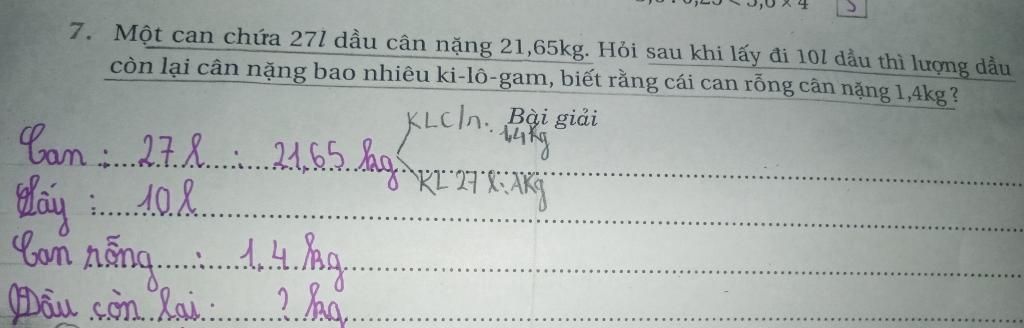 5,6 × 4
7. Một can chứa 27l dầu cân nặng 21,65kg. Hỏi sau khi lấy đi 10l dầu thì lượng dầu
còn lại cân nặng bao nhiêu ki-lô-gam, biết rằng cái can rỗng cân nặng 1,4kg?
Bài giải
KLC/n: 1,4kg
Can : 27 l : 21,65 kg
KL 27 l: AKg
Lấy : 10 l
Can rỗng : 1,4 kg
Dầu còn lại : ? kg